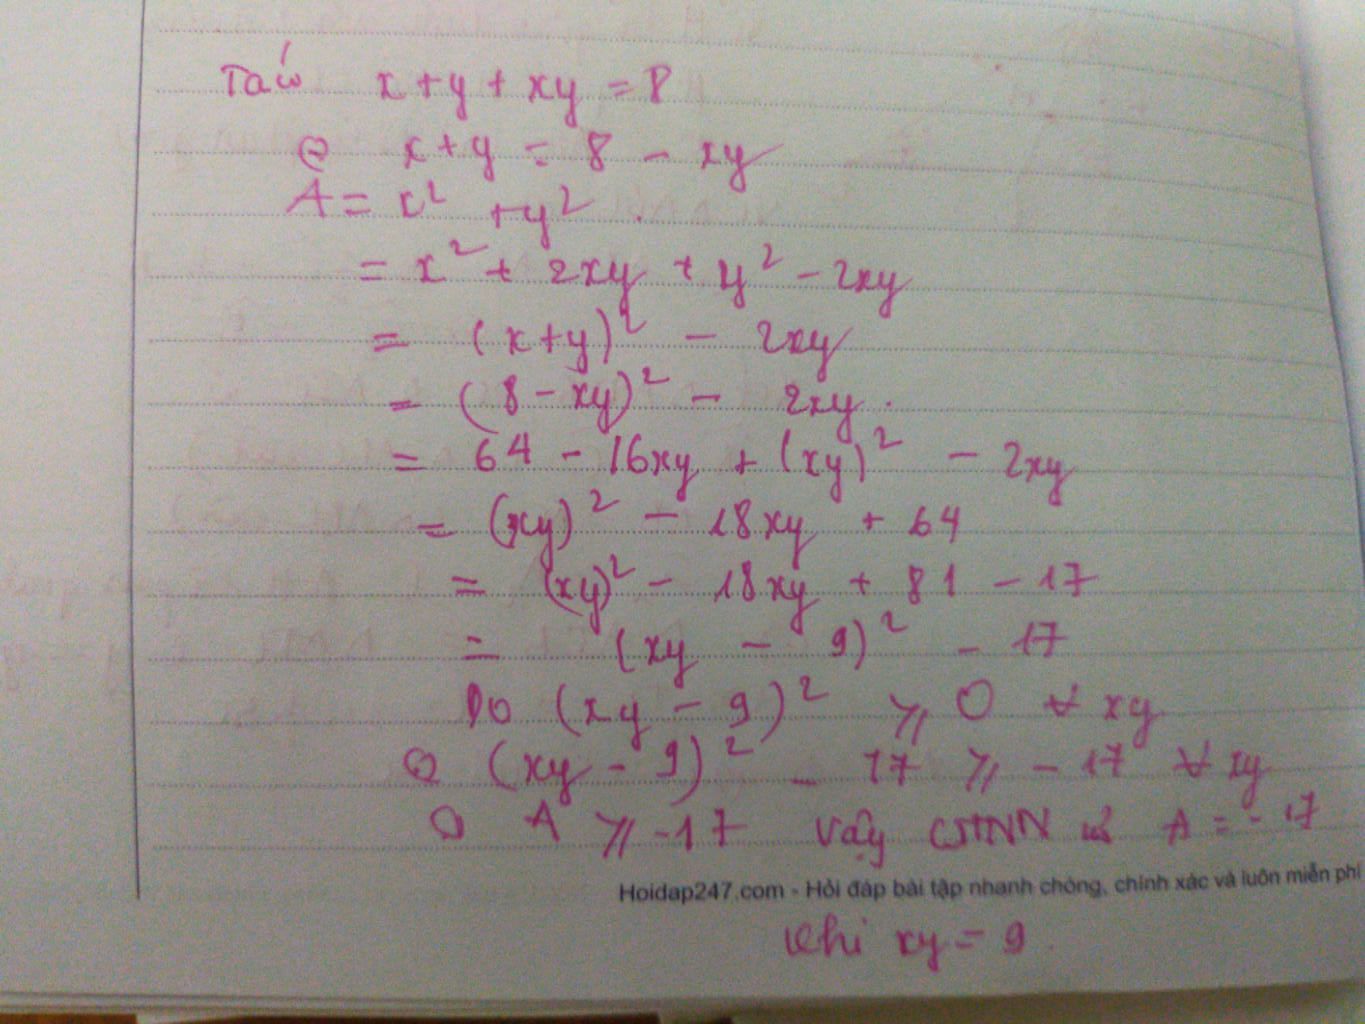 Ta có x + y + xy = 8
⇔ x + y = 8 - xy
A = x² + y².
= x² + 2xy + y² - 2xy
= (x + y)² - 2xy
= (8 - xy)² - 2xy.
= 64 - 16xy + (xy)² - 2xy
= (xy)² - 18xy + 64
= (xy)² - 18xy + 81 - 17
= (xy - 9)² - 17
Do (xy - 9)² ≥ 0 ∀ xy
⇔ (xy - 9)² - 17 ≥ - 17 ∀ xy
⇔ A ≥ -17 Vậy GTNN của A = - 17
Hoidap247.com - Hỏi đáp bài tập nhanh chóng, chính xác và luôn miễn phí
khi xy = 9